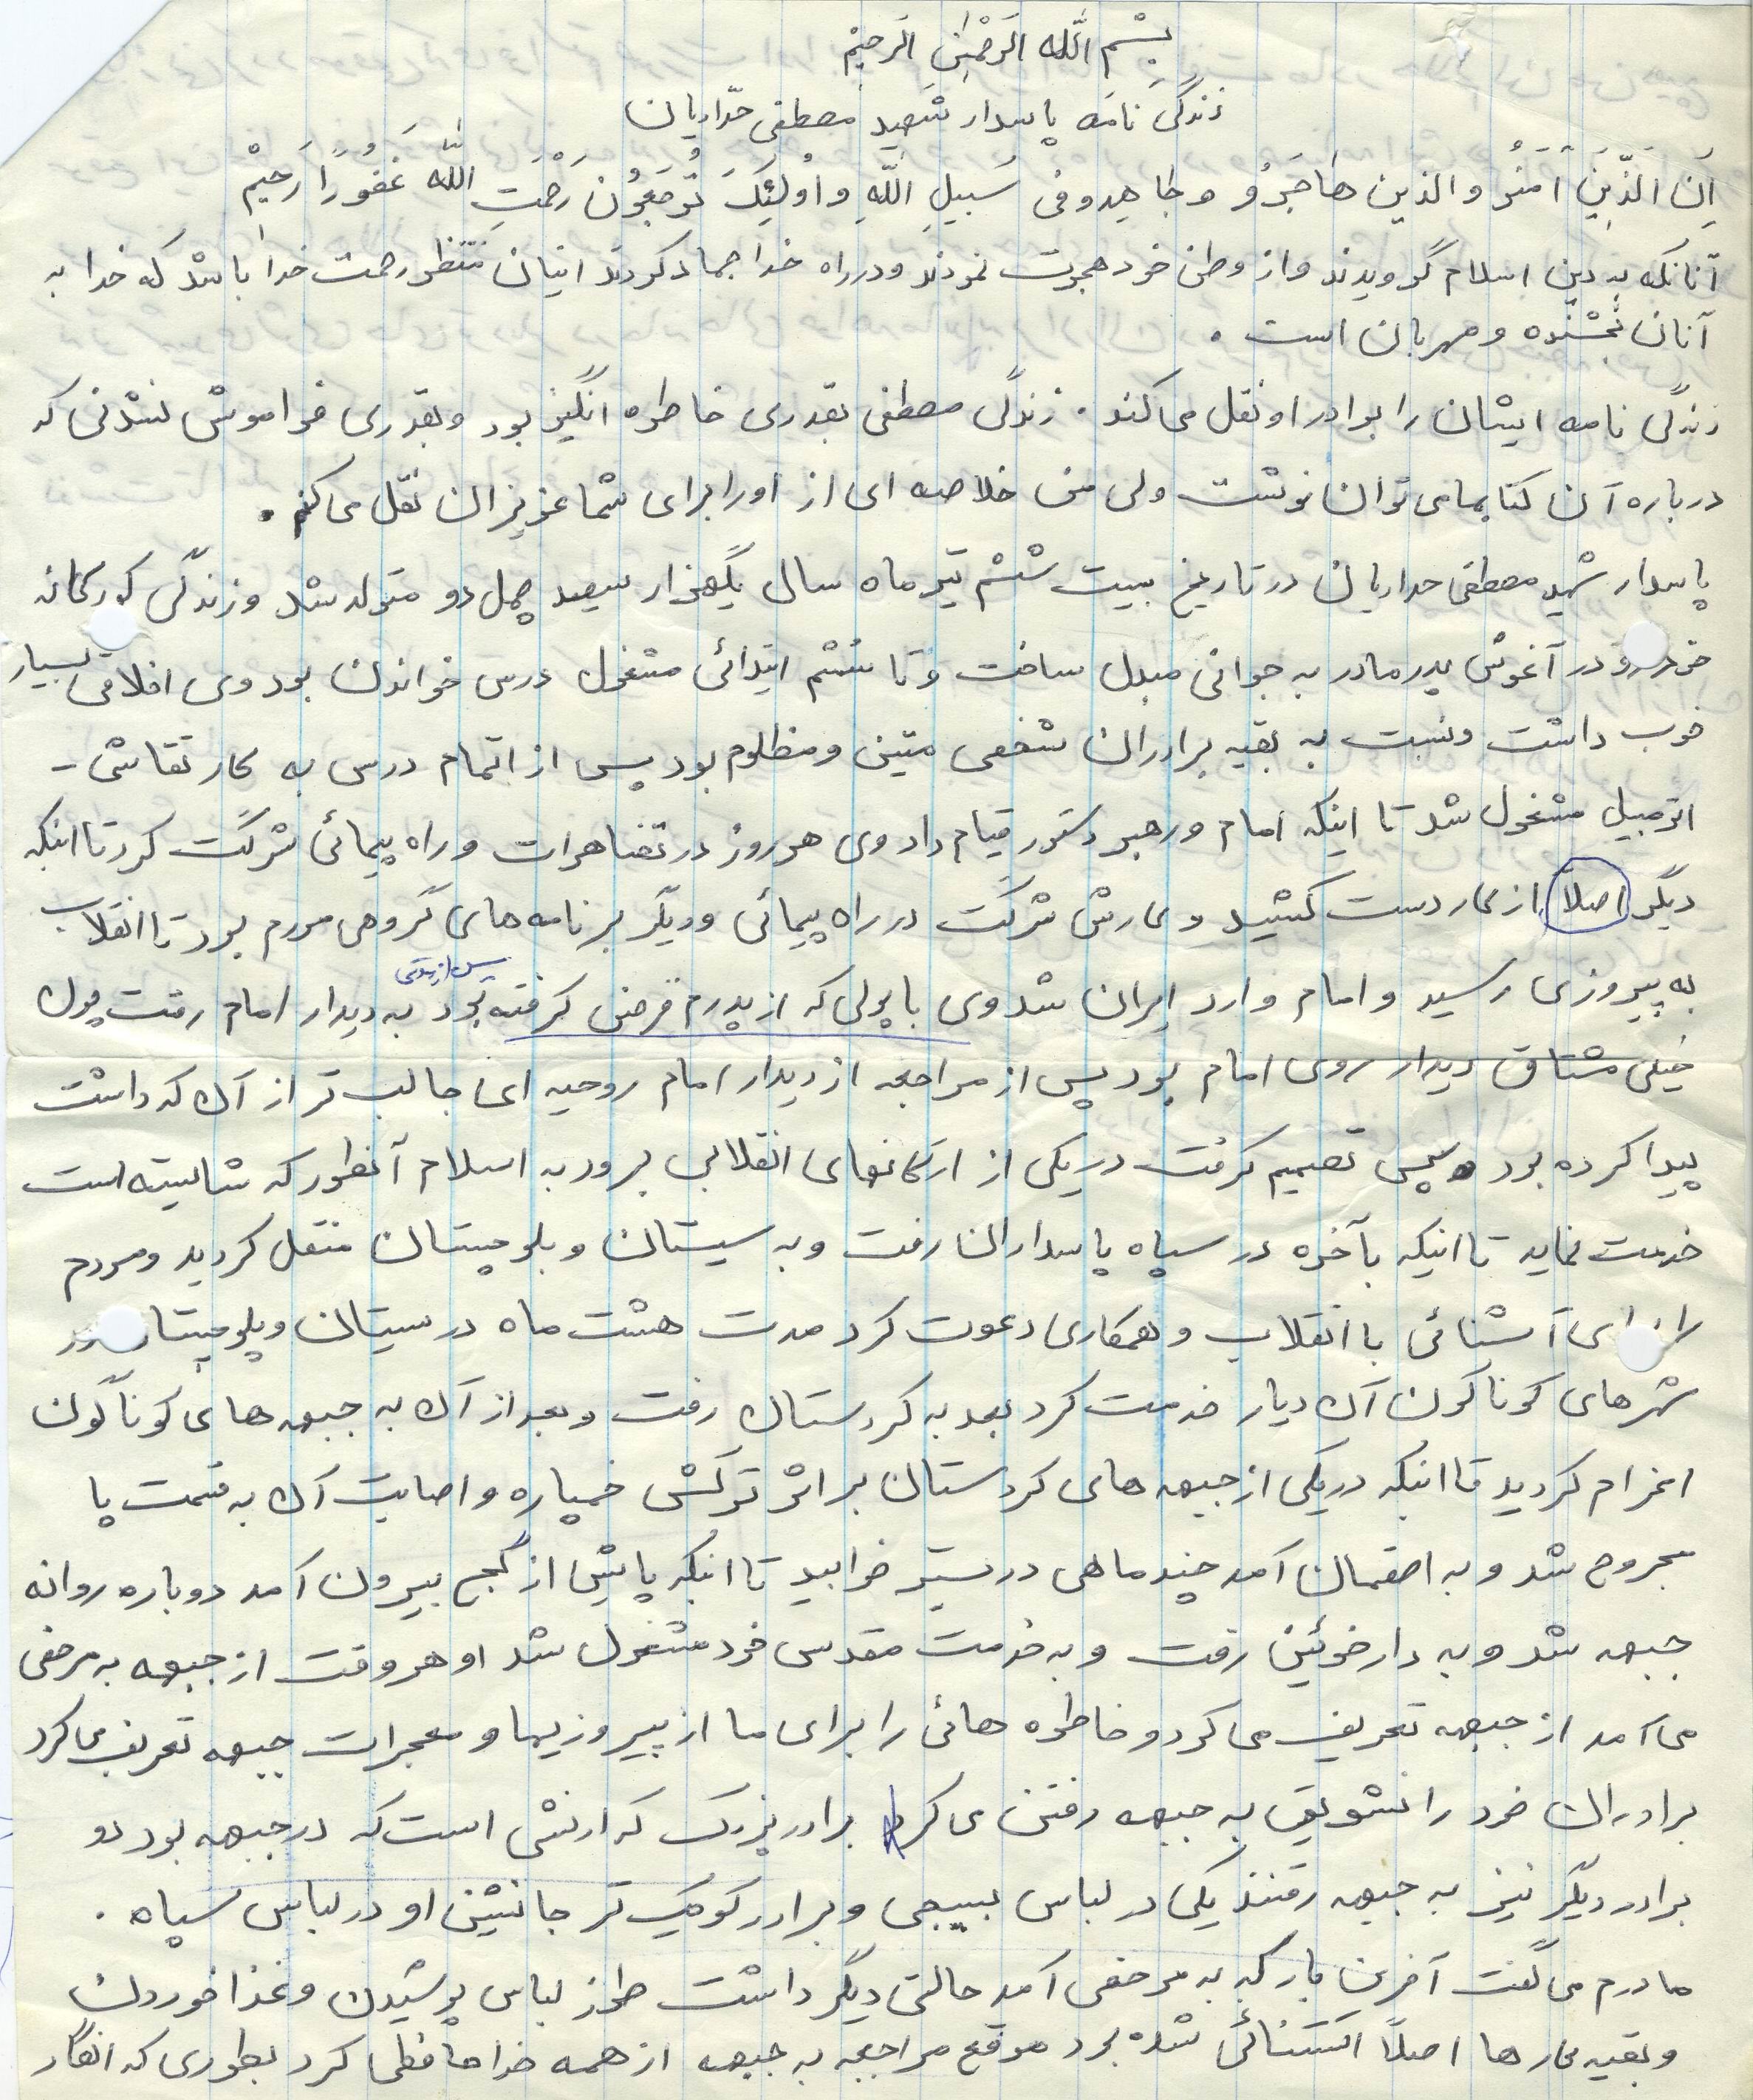 بِسْمِ اللّه الرَحْمنِ الرَحیْم
زندگی نامه پاسدار شهید مصطفی حدّاریان
اِنَ الَّذینَ آمَنُو والذین هاجَرُو وجاهدوفی سَبیلِ اللّهِ واوُلئِکَ تُرجَعُونَ رَحْمَتِ اللّه غَفُورًا رَحیْم
آنانکه به دین اسلام گرویدند واز وطن خود هجرت نمودند ودرراه خدا جهاد کردند اینان منتظر رحمت خدا باشد که خدا به
آنان بخشنده ومهربان است .
زندگی نامه ایشان را برادر او نقل می کند . زندگی مصطفی بقدری خاطره انگیز بود وبقدری فراموش نشدنی که
درباره آن کتابهامی توان نوشت ولی من خلاصه ای از اورا برای شما عزیزان نقل می کنم .
پاسدار شهید مصطفی حداریان در تاریخ بیست ششم تیر ماه سال یکهزار سیصد چهل دو متولد شد و زندگی کودکانه
خود رو در آغوش پدر مادر به جوانی مبدل ساخت وتا ششم ابتدائی مشغول درس خواندن بود وی اخلاقی بسیار
خوب داشت ونسبت به بقیه برادران شخصی متین ومظلوم بود پس از اتمام درس به کار نقاشی -
اتومبیل مشغول شد تا اینکه امام ورهبر دستور قیام داد وی هر روز در تضاهرات وراه پیمائی شرکت کرد تا اینکه
دیگر اصلاً از کار دست کشید و کارش شرکت در راه پیمائی ودیگر برنامه های گروهی مردم بود تا انقلاب
به پیروزی رسید و امام وارد ایران شد وی با پولی که از پدرم قرض گرفته بود به دیدار امام رفت چون
خیلی مشتاق دیدار روی امام بود پس از مراجعه از دیدار امام روحیه ای جالب تر از آن که داشت
پیدا کرده بود سپس تصمیم گرفت در یکی از ارگانهای انقلابی برود به اسلام آنطور که شایسته است
خدمت نماید تا اینکه بآخره در سپاه پاسداران رفت و به سیستان و بلوچستان منتقل گردید ومردم
را برای آشنائی با انقلاب وهمکاری دعوت کرد مدت هشت ماه در سیستان وبلوچستان در
شهرهای گوناگون آن دیار خدمت کرد بعد به کردستان رفت وبعد از آن به جبهه های گوناگون
اعزام گردید تا اینکه در یکی از جبهه های کردستان بر اثر ترکش خمپاره و اصابت آن به قسمت پا
مجروح شد و به اصفهان آمد چند ماهی در بستر خوابید تا اینکه پایش از گچ بیرون آمد دوباره روانه
جبهه شد وبه دارخوئین رفت و به خدمت مقدس خود مشغول شد او هر وقت از جبهه به مرخصی
می آمد از جبهه تعریف می کرد و خاطره هائی را برای ما از پیروزیها و معجزات جبهه تعریف می کرد
برادران خود را تشویق به جبهه رفتن می کرد برادر بزرگ که ارتشی است که در جبهه بود دو
برادر دیگر نیز به جبهه رفتند یکی در لباس بسیجی وبرادر کوچک تر جانشین او در لباس سپاه .
مادرم می گفت آخرین بار که به مرخصی آمد حالتی دیگر داشت طرز لباس پوشیدن وغذا خوردن
وبقیه کارها اصلاً استثنائی شده بود موقع مراجعه به جبهه از همه خداحافظی کرد بطوری که انگار